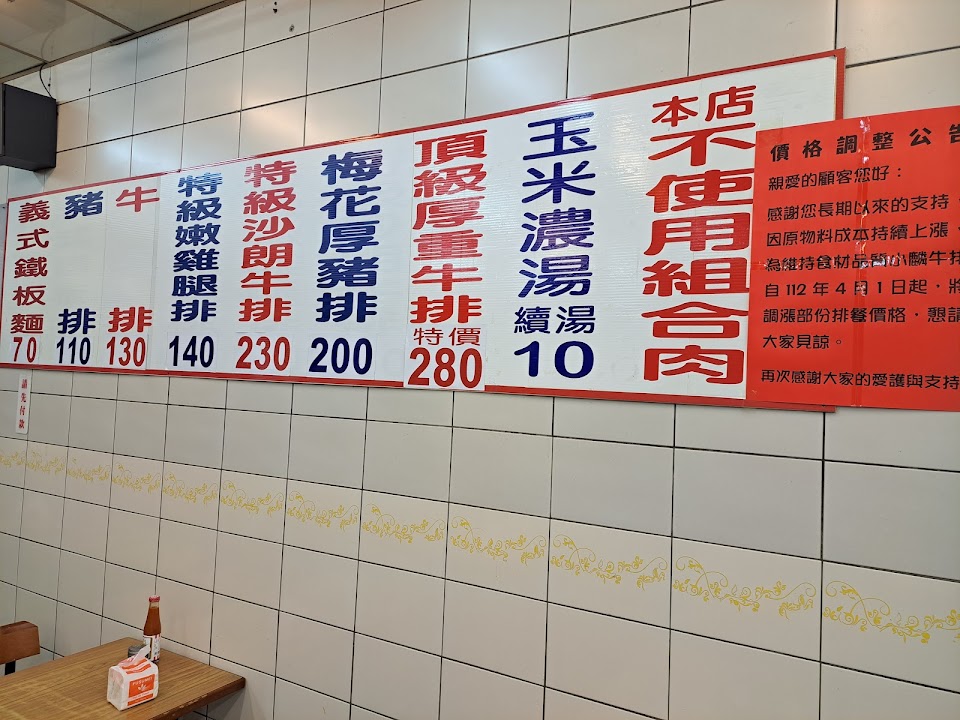 義式鐵板麵
70
豬排
110
牛排
130
特級嫩雞腿排
140
特級沙朗牛排
230
梅花厚豬排
200
頂級厚重牛排
特價
280
玉米濃湯
續湯
10
本店
不使用組合肉
價格調整公告
親愛的顧客您好：
感謝您長期以來的支持，
因原物料成本持續上漲，
為維持食材品質小麟牛排
自112年4月1日起，將
調漲部份排餐價格，懇請
大家見諒。
再次感謝大家的愛護與支持
請先付款